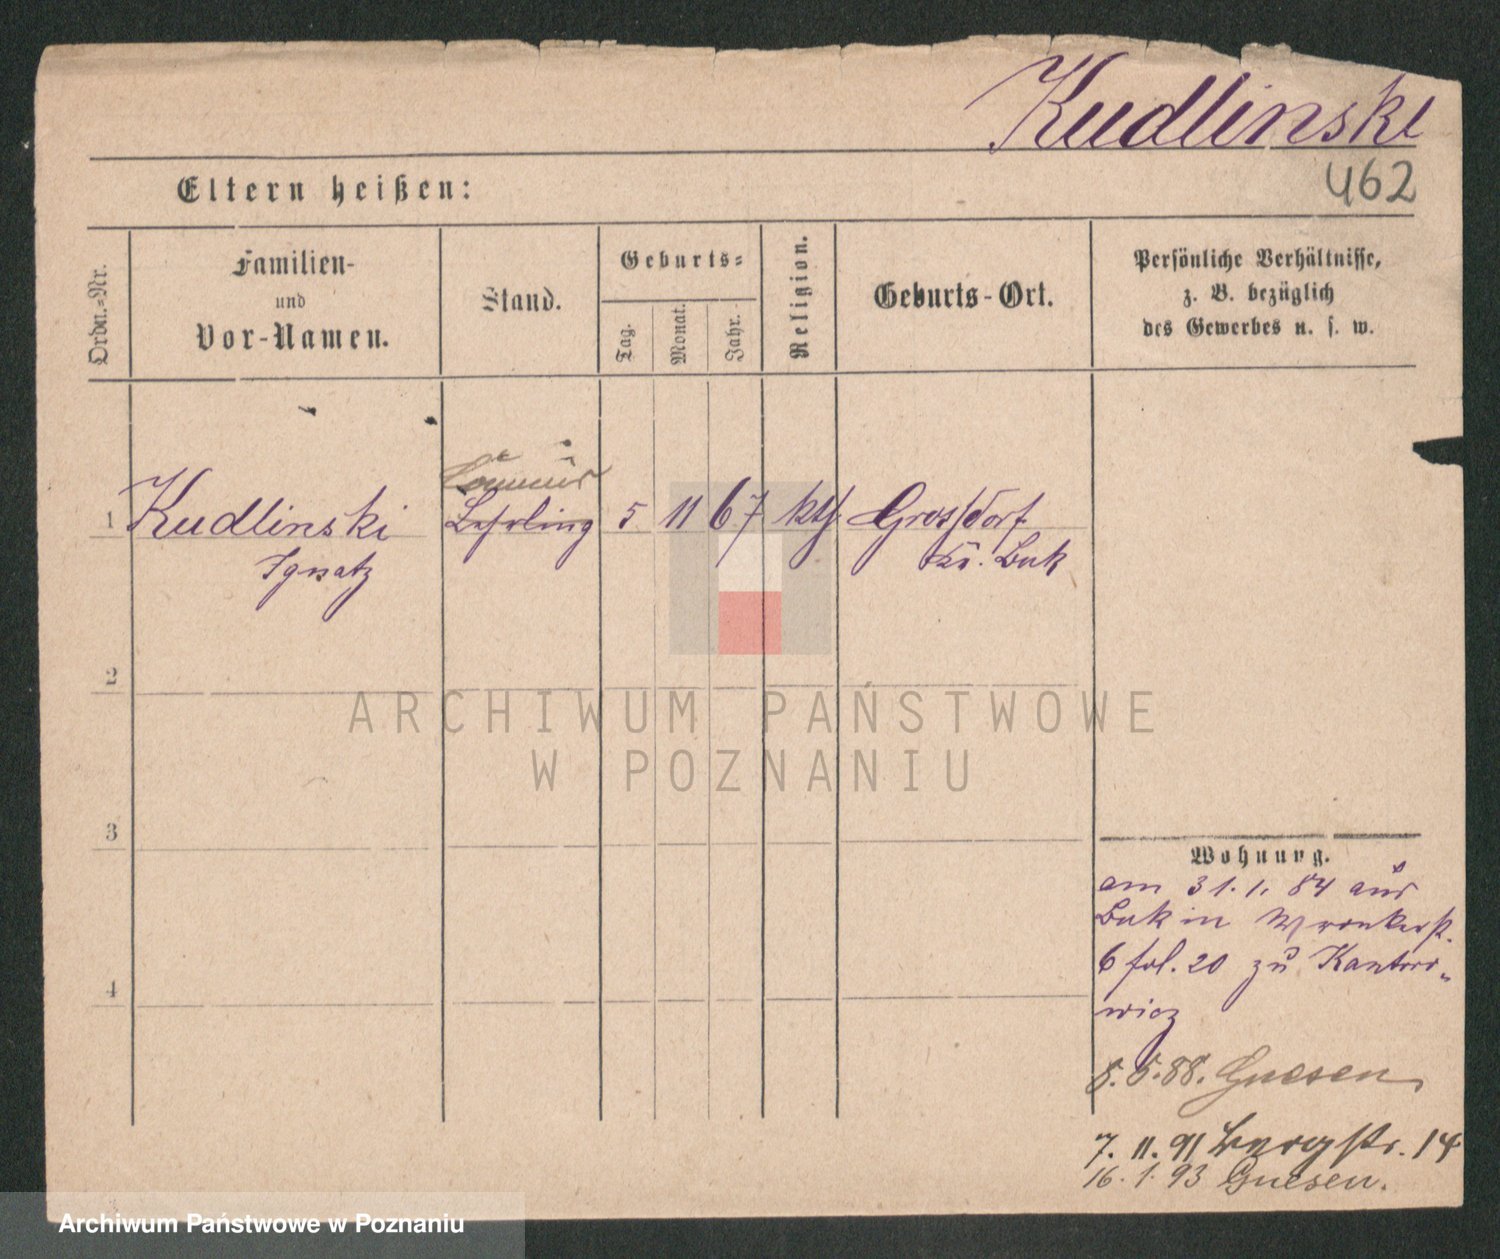 Kudlinski
462
Eltern heißen:
Ordn.-Nr.
Familien-
und
Vor-Namen.
Stand.
Geburts-
Tag.
Monat.
Jahr.
Religion.
Geburts-Ort.
Persönliche Verhältnisse,
z. B. bezüglich
des Gewerbes u. s. w.
1 Kudlinski Lehrling 5 11 67 kth. Grossdorf
Ignatz Kr. Buk
2
ARCHIWUM PAŃSTWOWE
W POZNANIU
3
Wohnung.
am 31. 1. 84 aus
Buk in Wronkerst.
6 fol. 20 zu Kantoro-
wicz
4
5. 5. 88. Gnesen
7. 11. 91 Bergstr. 14
16. 1. 93 Gnesen.
Archiwum Państwowe w Poznaniu